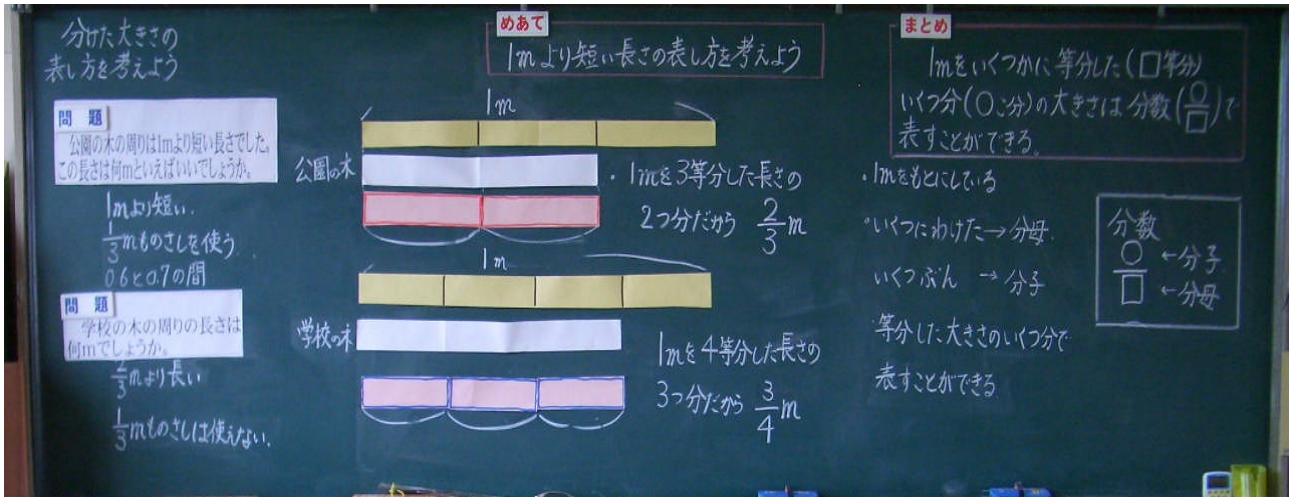 分けた大きさの
表し方を考えよう
問題
公園の木の周りは1mより短い長さでした。
この長さは何mといえばいいでしょうか。
1mより短い.
1/3mものさしを使う.
0.6と0.7の間
問題
学校の木の周りの長さは
何mでしょうか。
2/3mより長い
1/3mものさしは使えない.
めあて
1mより短い長さの表し方を考えよう
1m
公園の木
・1mを3等分した長さの
2つ分だから 2/3m
1m
学校の木
1mを4等分した長さの
3つ分だから 3/4m
まとめ
1mをいくつかに等分した(□等分)
いくつ分(○こ分)の大きさは分数(○/□)で
表すことができる。
・1mをもとにしている
・いくつにわけた→分母.
いくつぶん →分子
等分した大きさのいくつ分で
表すことができる
分数
○ ←分子
□ ←分母